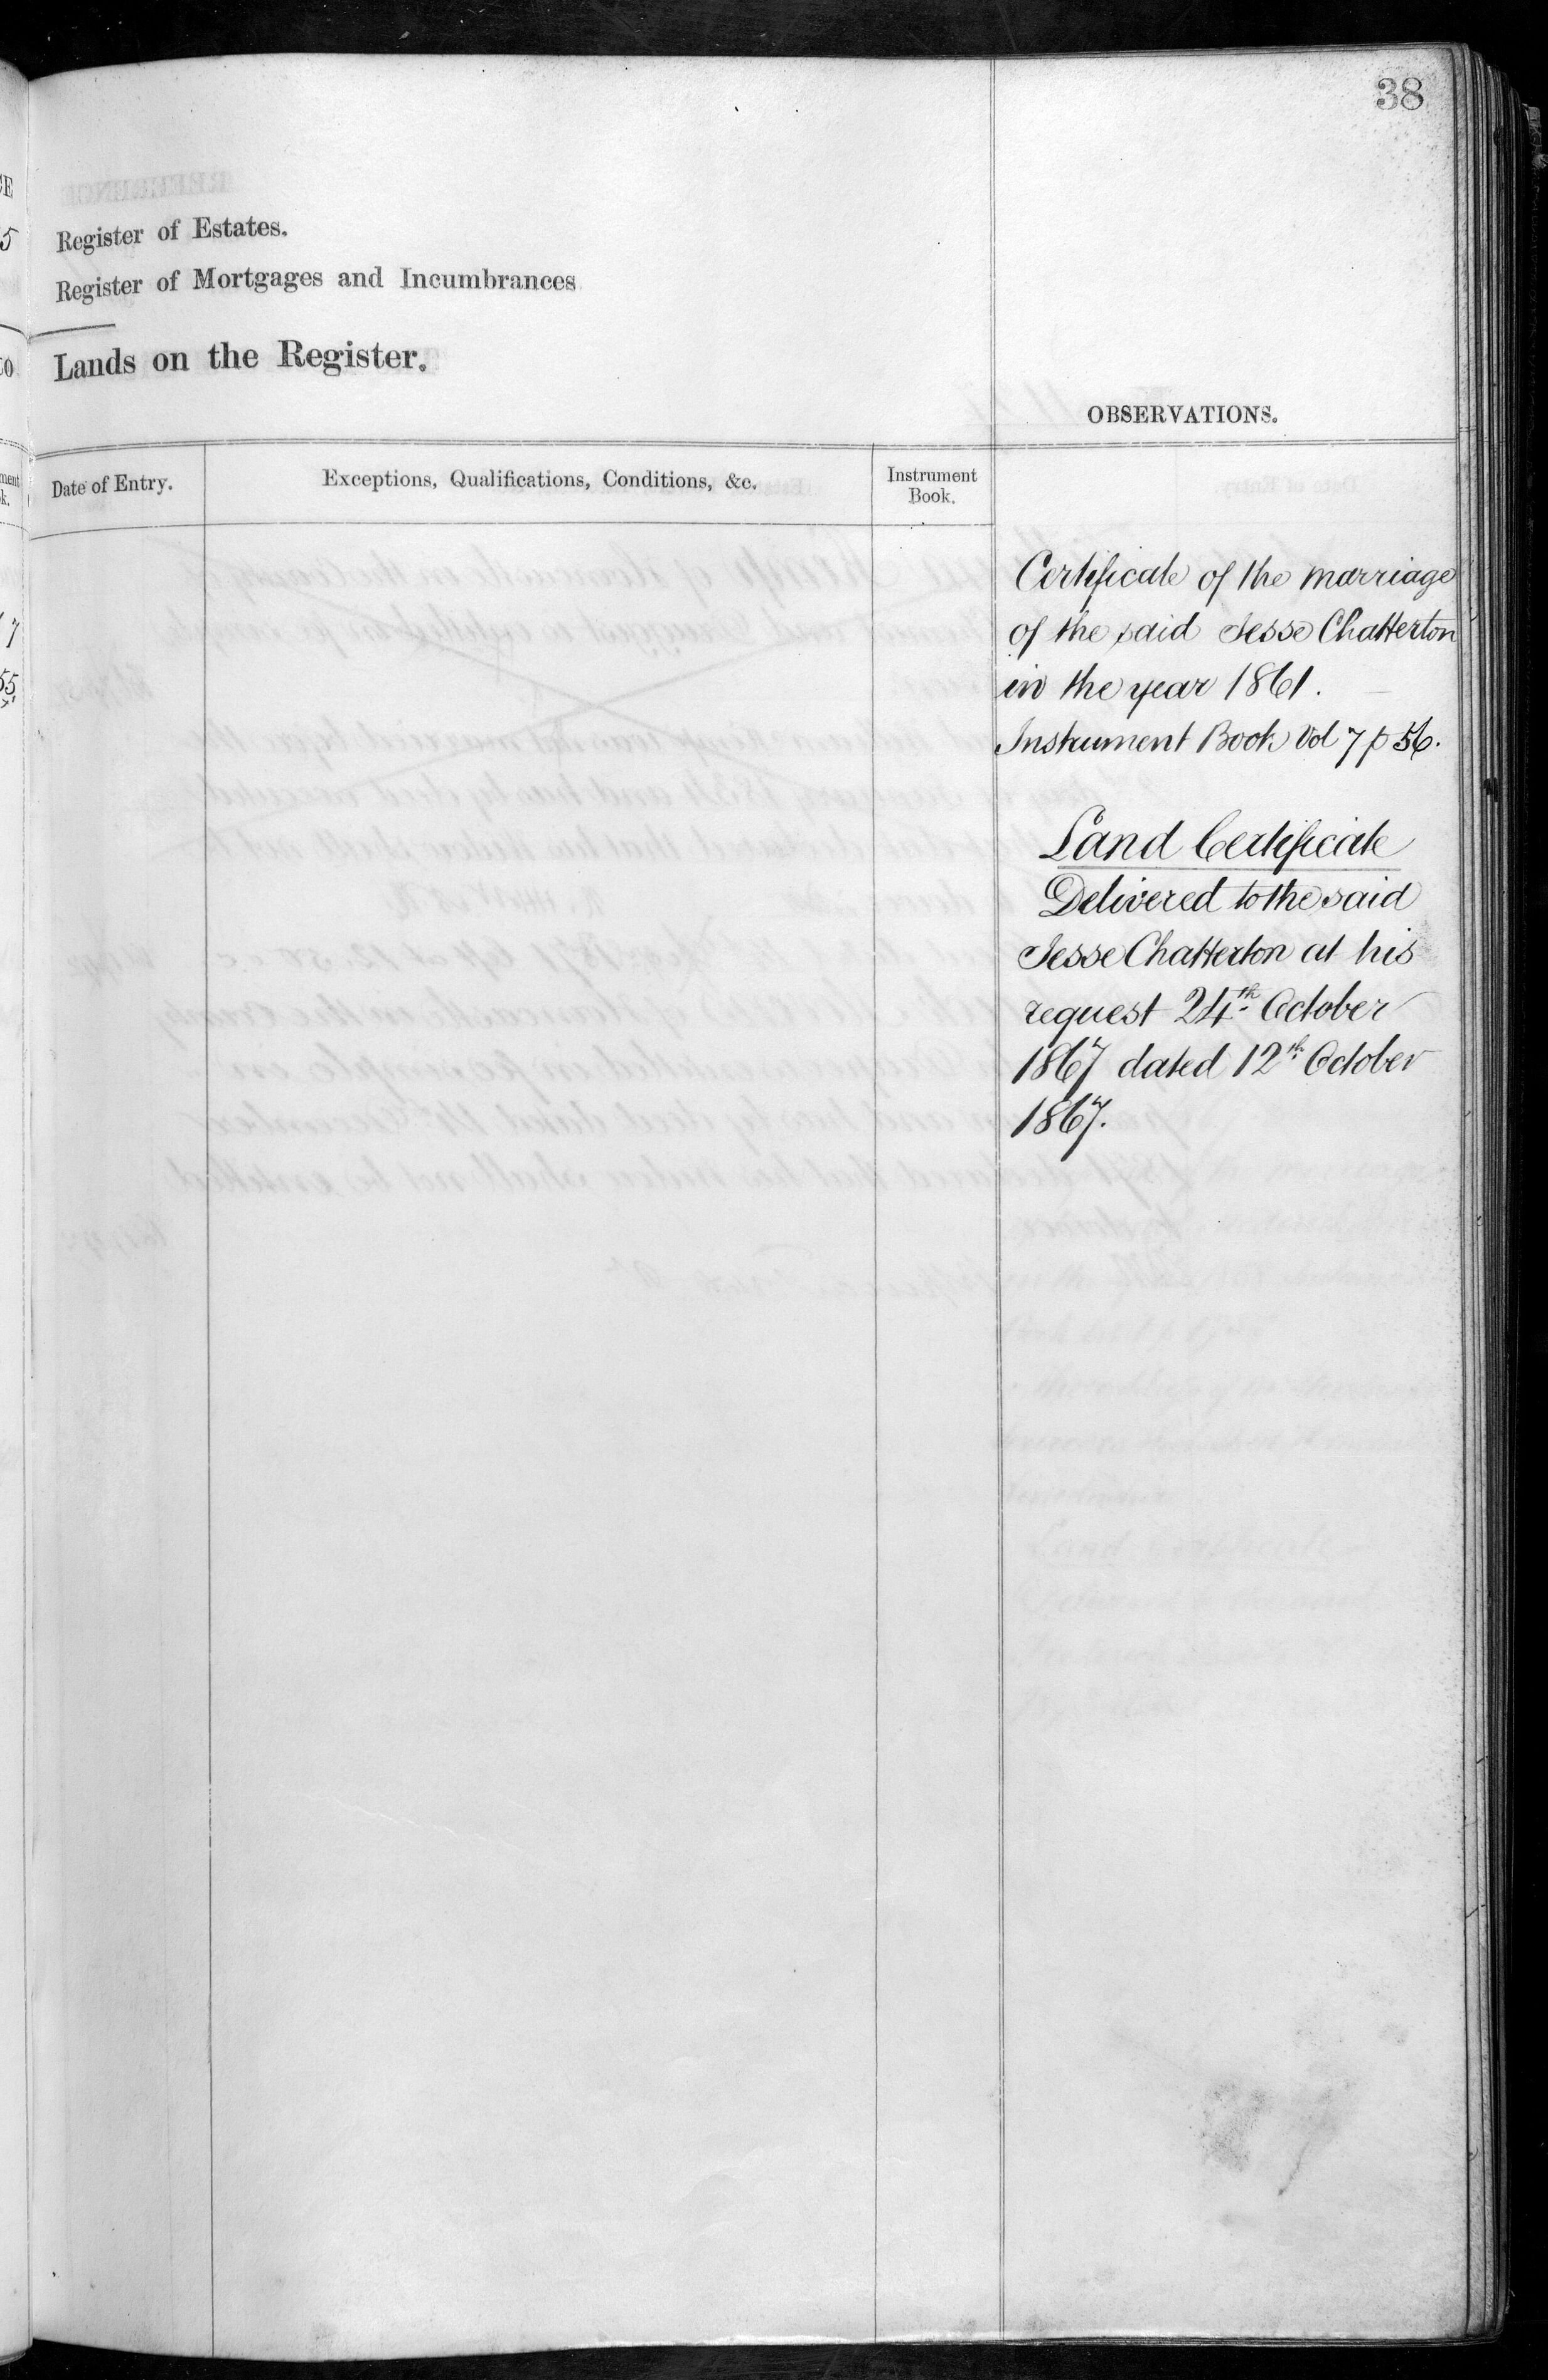 38
Register of Estates.
Register of Mortgages and Incumbrances
Lands on the Register.
OBSERVATIONS.
Date of Entry.
Exceptions, Qualifications, Conditions, &c.
Instrument
Book.
Certificate of the marriage
of the said Jesse Chatterton
in the year 1861.
Instrument Book Vol 7 p 56.
Land Certificate
Delivered to the said
Jesse Chatterton at his
request 24th October
1867 dated 12th October
1867.